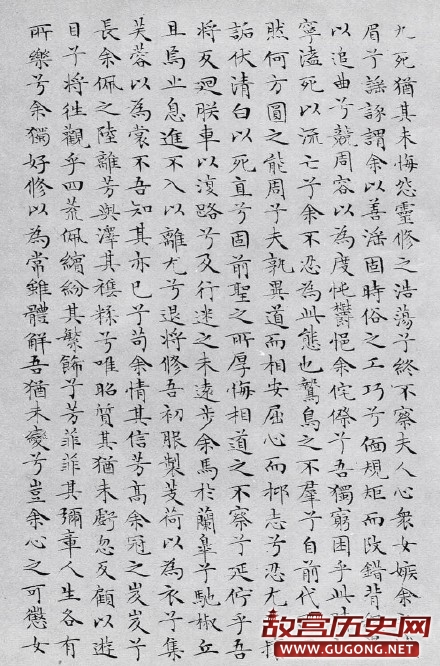 九死猶其未悔怨靈修之浩蕩兮終不察夫人心衆女嫉余
眉兮謡諑謂余以善淫固時俗之工巧兮偭規矩而改錯背
以追曲兮競周容以為度忳鬱悒余侘傺兮吾獨窮困乎此
寧溘死以流亡兮余不忍為此態也鷙鳥之不羣兮自前代
然何方圓之能周兮夫孰異道而相安屈心而抑志兮忍尤
詬伏清白以死直兮固前聖之所厚悔相道之不察兮延佇乎吾
將反廻朕車以復路兮及行迷之未遠步余馬於蘭皋兮馳椒丘
且焉止息進不入以離尤兮退將修吾初服製芰荷以為衣兮集
芙蓉以為裳不吾知其亦已兮苟余情其信芳高余冠之岌岌兮
長余佩之陸離芳與澤其襍糅兮唯昭質其猶未虧忽反顧以遊
目兮將往觀乎四荒佩繽紛其繁飾兮芳菲菲其彌章人生各有
所樂兮余獨好修以為常雖體解吾猶未變兮豈余心之可懲女
故宫历史网
www.gugong.net